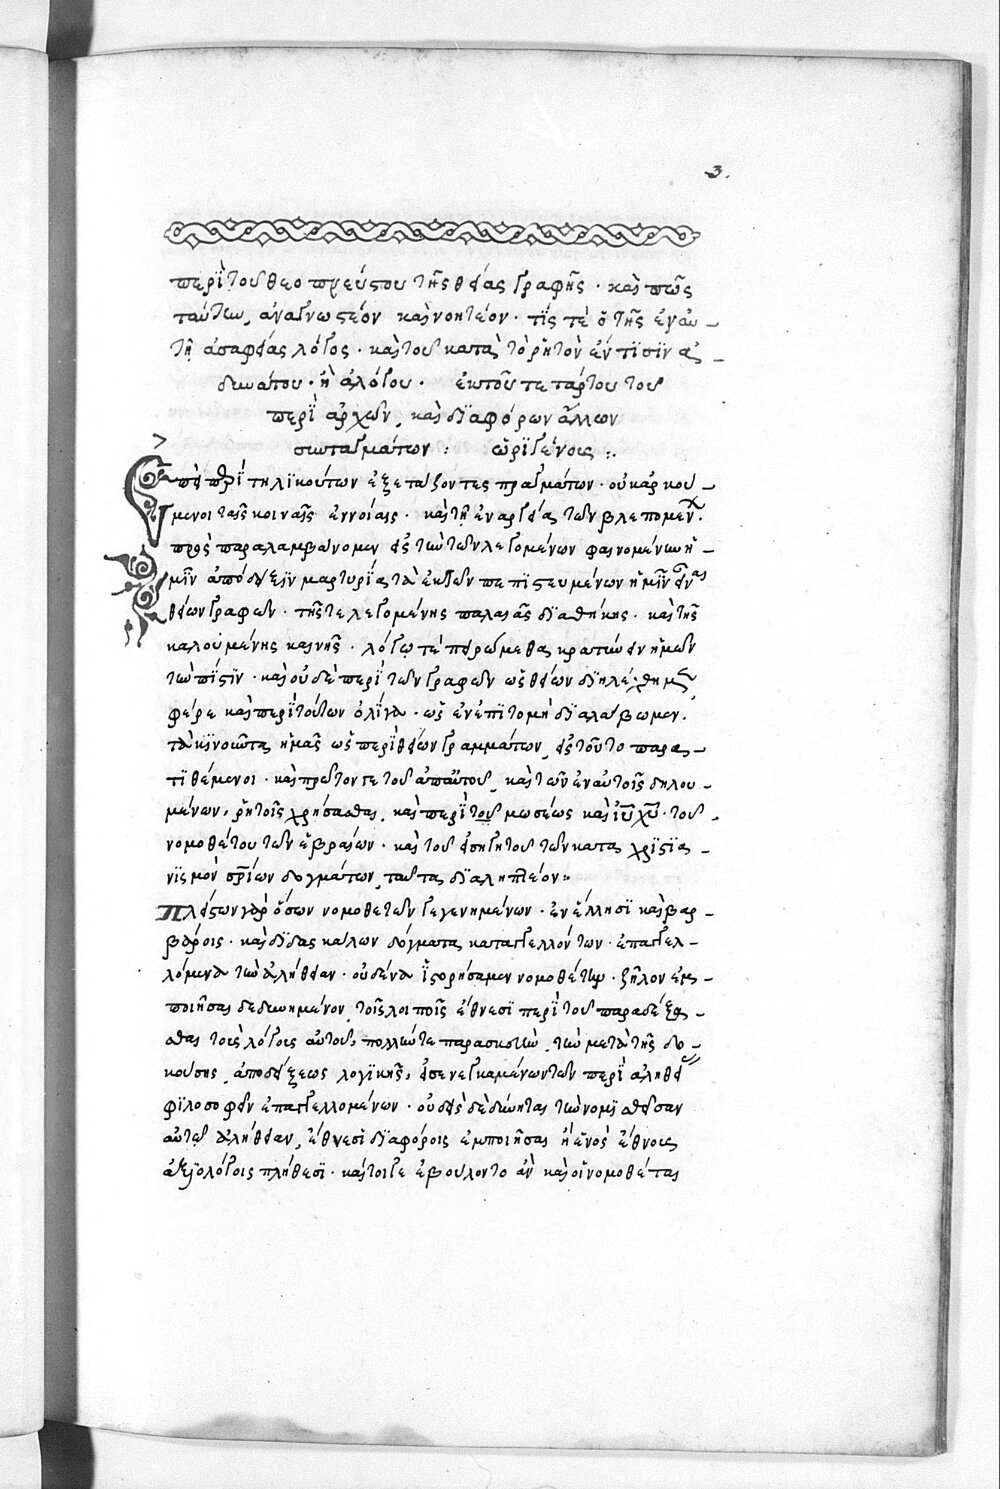 3.
περὶ τοῦ θεοπνεύστου τῆς θείας γραφῆς · καὶ πῶς
ταύτην ἀναγνωστέον καὶ νοητέον · τίς τὲ ὁ τῆς ἐν αὐ-
τῇ ἀσαφείας λόγος · καὶ τοῦ κατὰ τὸ ῥητὸν ἔν τισιν ἀ-
δυνάτου · ἢ ἀλόγου · ἐκ τοῦ τετάρτου τοῦ
περὶ ἀρχῶν, καὶ διαφόρων ἄλλων
συνταγμάτων : ὠριγένους :.
Ἐπεὶ περὶ τηλικούτων ἐξετάζοντες πραγμάτων · οὐκ ἀρκού-
μενοι ταῖς κοιναῖς ἐννοίαις · καὶ τῇ ἐναργείᾳ τῶν βλεπομέν.
πρὸς παραλαμβάνομεν εἰς τὴν τῶν λεγομένων φαινομένην ἡ-
μῖν ἀπόδειξιν μαρτυρίας τὰ ἐκ τῶν πεπιστευμένων ἡμῖν εἶναι
θείων γραφῶν · τῆς τε λεγομένης παλαιᾶς διαθήκης · καὶ τῆς
καλουμένης καινῆς · λόγῳ τὲ πειρώμεθα κρατύνειν ἡμῶν
τὴν πίστιν · καὶ οὐδὲ περὶ τῶν γραφῶν ὡς θείων διηλέχθημεν
φέρε καὶ περὶ τούτων ὀλίγα · ὡς ἐν ἐπιτομῇ διαλάβωμεν.
τὰ κινοῦντα ἡμᾶς ὡς περὶ θείων γραμμάτων, εἰς τοῦτο παρα-
τιθέμενοι · καὶ πρῶτόν γε τοῦ ἀπ αὐτοῦ, καὶ τῶν ἐν αὐτοῖς δηλου-
μένων, ῥητοῖς χρήσασθαι, καὶ περὶ τοῦ μωσέως καὶ ἰυ χυ · τοῦ
νομοθέτου τῶν ἑβραίων · καὶ τοῦ εἰσηγητοῦ τῶν κατὰ χριστια-
νισμὸν σρίων δογμάτων, ταῦτα διαληπτέον:
Πλείστων γὰρ ὅσων νομοθετῶν γεγενημένων · ἐν ἕλλησι καὶ βαρ-
βάροις · καὶ διδασκάλων δόγματα καταγγελλόντων · ἐπαγγελ-
λόμενα τὴν ἀλήθειαν · οὐδένα ἱστορήσαμεν νομοθέτην · ζῆλον ἐμ-
ποιῆσαι δεδυνημένον, τοῖς λοιποῖς ἔθνεσι περὶ τοῦ παραδέξα-
σθαι τοὺς λόγους αὐτοῦ, πολλήν τε παρασκευὴν, τὴν μετὰ τῆς δο-
κούσης, ἀποδείξεως λογικῆς, εἰσενεγκαμένων τῶν περὶ ἀληθείας
φιλοσοφεῖν ἐπαγγελλομένων · οὐδεὶς δεδύνηται τὴν νομισθεῖσαν
αὐτῷ ἀλήθειαν, ἔθνεσι διαφόροις ἐμποιῆσαι ἢ ἑνὸς ἔθνους
ἀξιολόγοις πλήθεσι · καίτοιγε ἐβούλοντο ἂν καὶ οἱ νομοθέται